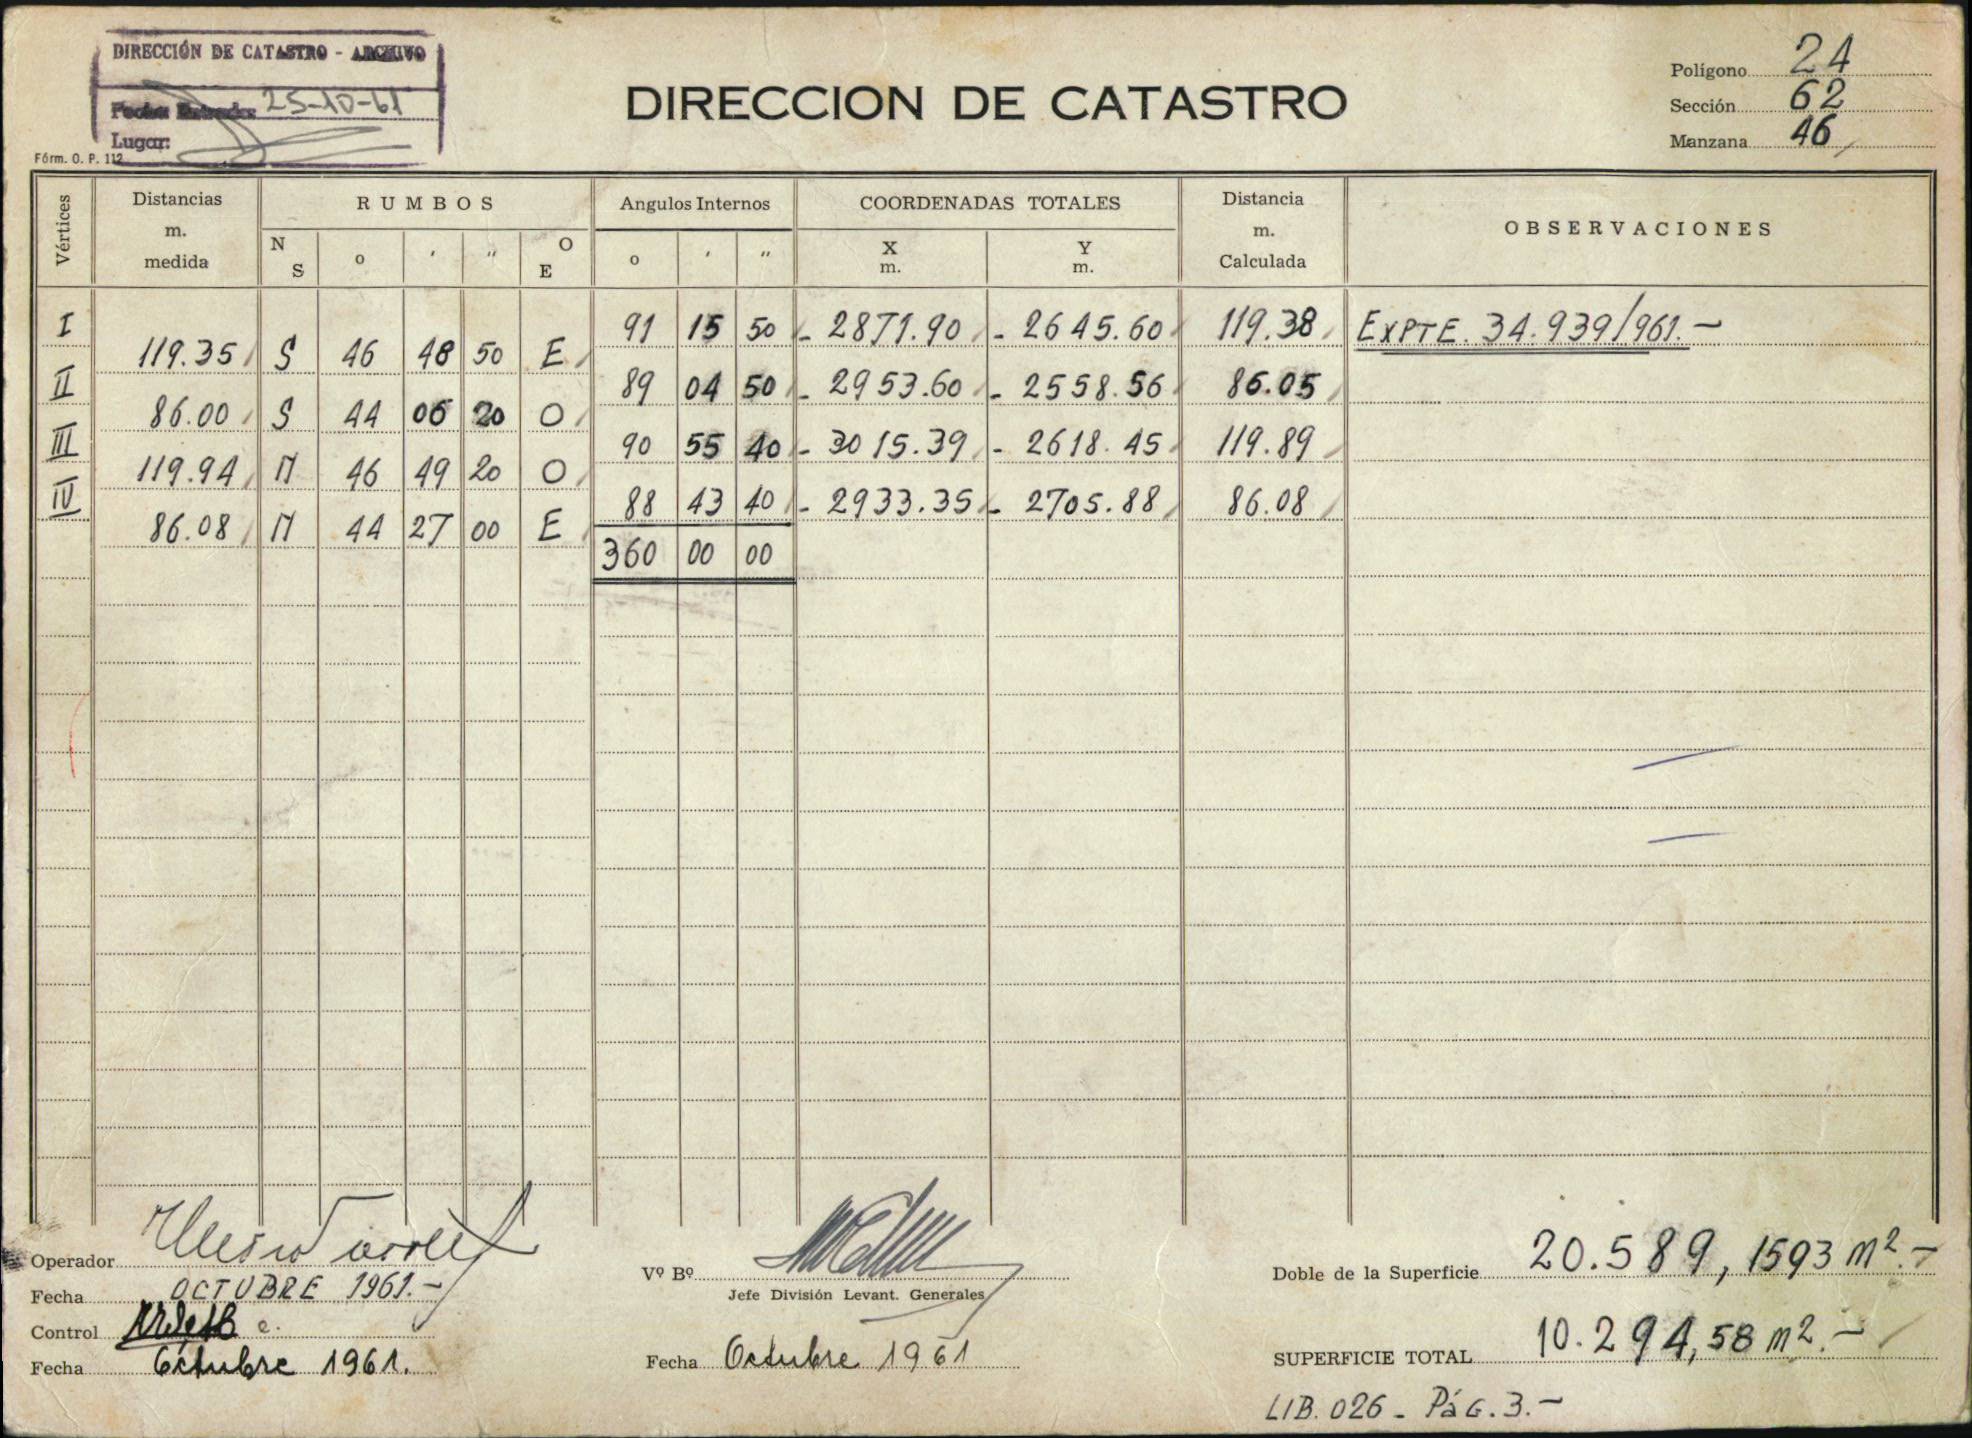 DIRECCIÓN DE CATASTRO - ARCHIVO
Fecha Entrada: 25-10-61
Lugar:
Fórm. O. P. 112
DIRECCION DE CATASTRO
Polígono 24
Sección 62
Manzana 46
Vértices
Distancias m. medida
RUMBOS
N S
o
'
"
O E
Angulos Internos
o
'
"
COORDENADAS TOTALES
X m.
Y m.
Distancia m. Calculada
OBSERVACIONES
I 91 15 50 - 2871.90 - 2645.60 119.38 EXPTE. 34.939/961.-
119.35 S 46 48 50 E
II 89 04 50 - 2953.60 - 2558.56 86.05
86.00 S 44 06 20 O
III 90 55 40 - 3015.39 - 2618.45 119.89
119.94 N 46 49 20 O
IV 88 43 40 - 2933.35 - 2705.88 86.08
86.08 N 44 27 00 E
360 00 00
Operador
Fecha OCTUBRE 1961.-
Control
Fecha Octubre 1961.
Vº Bº
Jefe División Levant. Generales
Fecha Octubre 1961
Doble de la Superficie 20.589,1593 m2.-
SUPERFICIE TOTAL 10.294,58 m2.-
LIB. 026 - PáG. 3.-